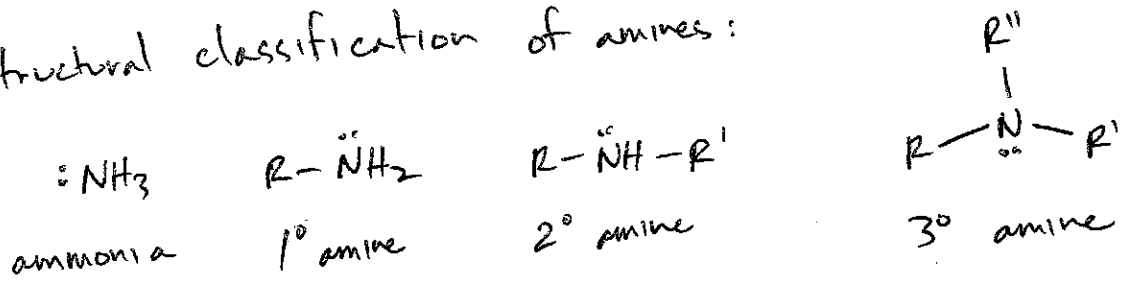 tructural classification of amines:
R"
:NH3 R-N̈H2 R-N̈H-R' R-N̤-R'
ammonia 1° amine 2° amine 3° amine